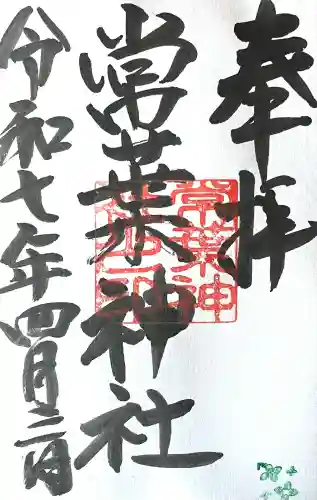 奉拝
常葉神社
令和七年四月二日
常葉神
社之印